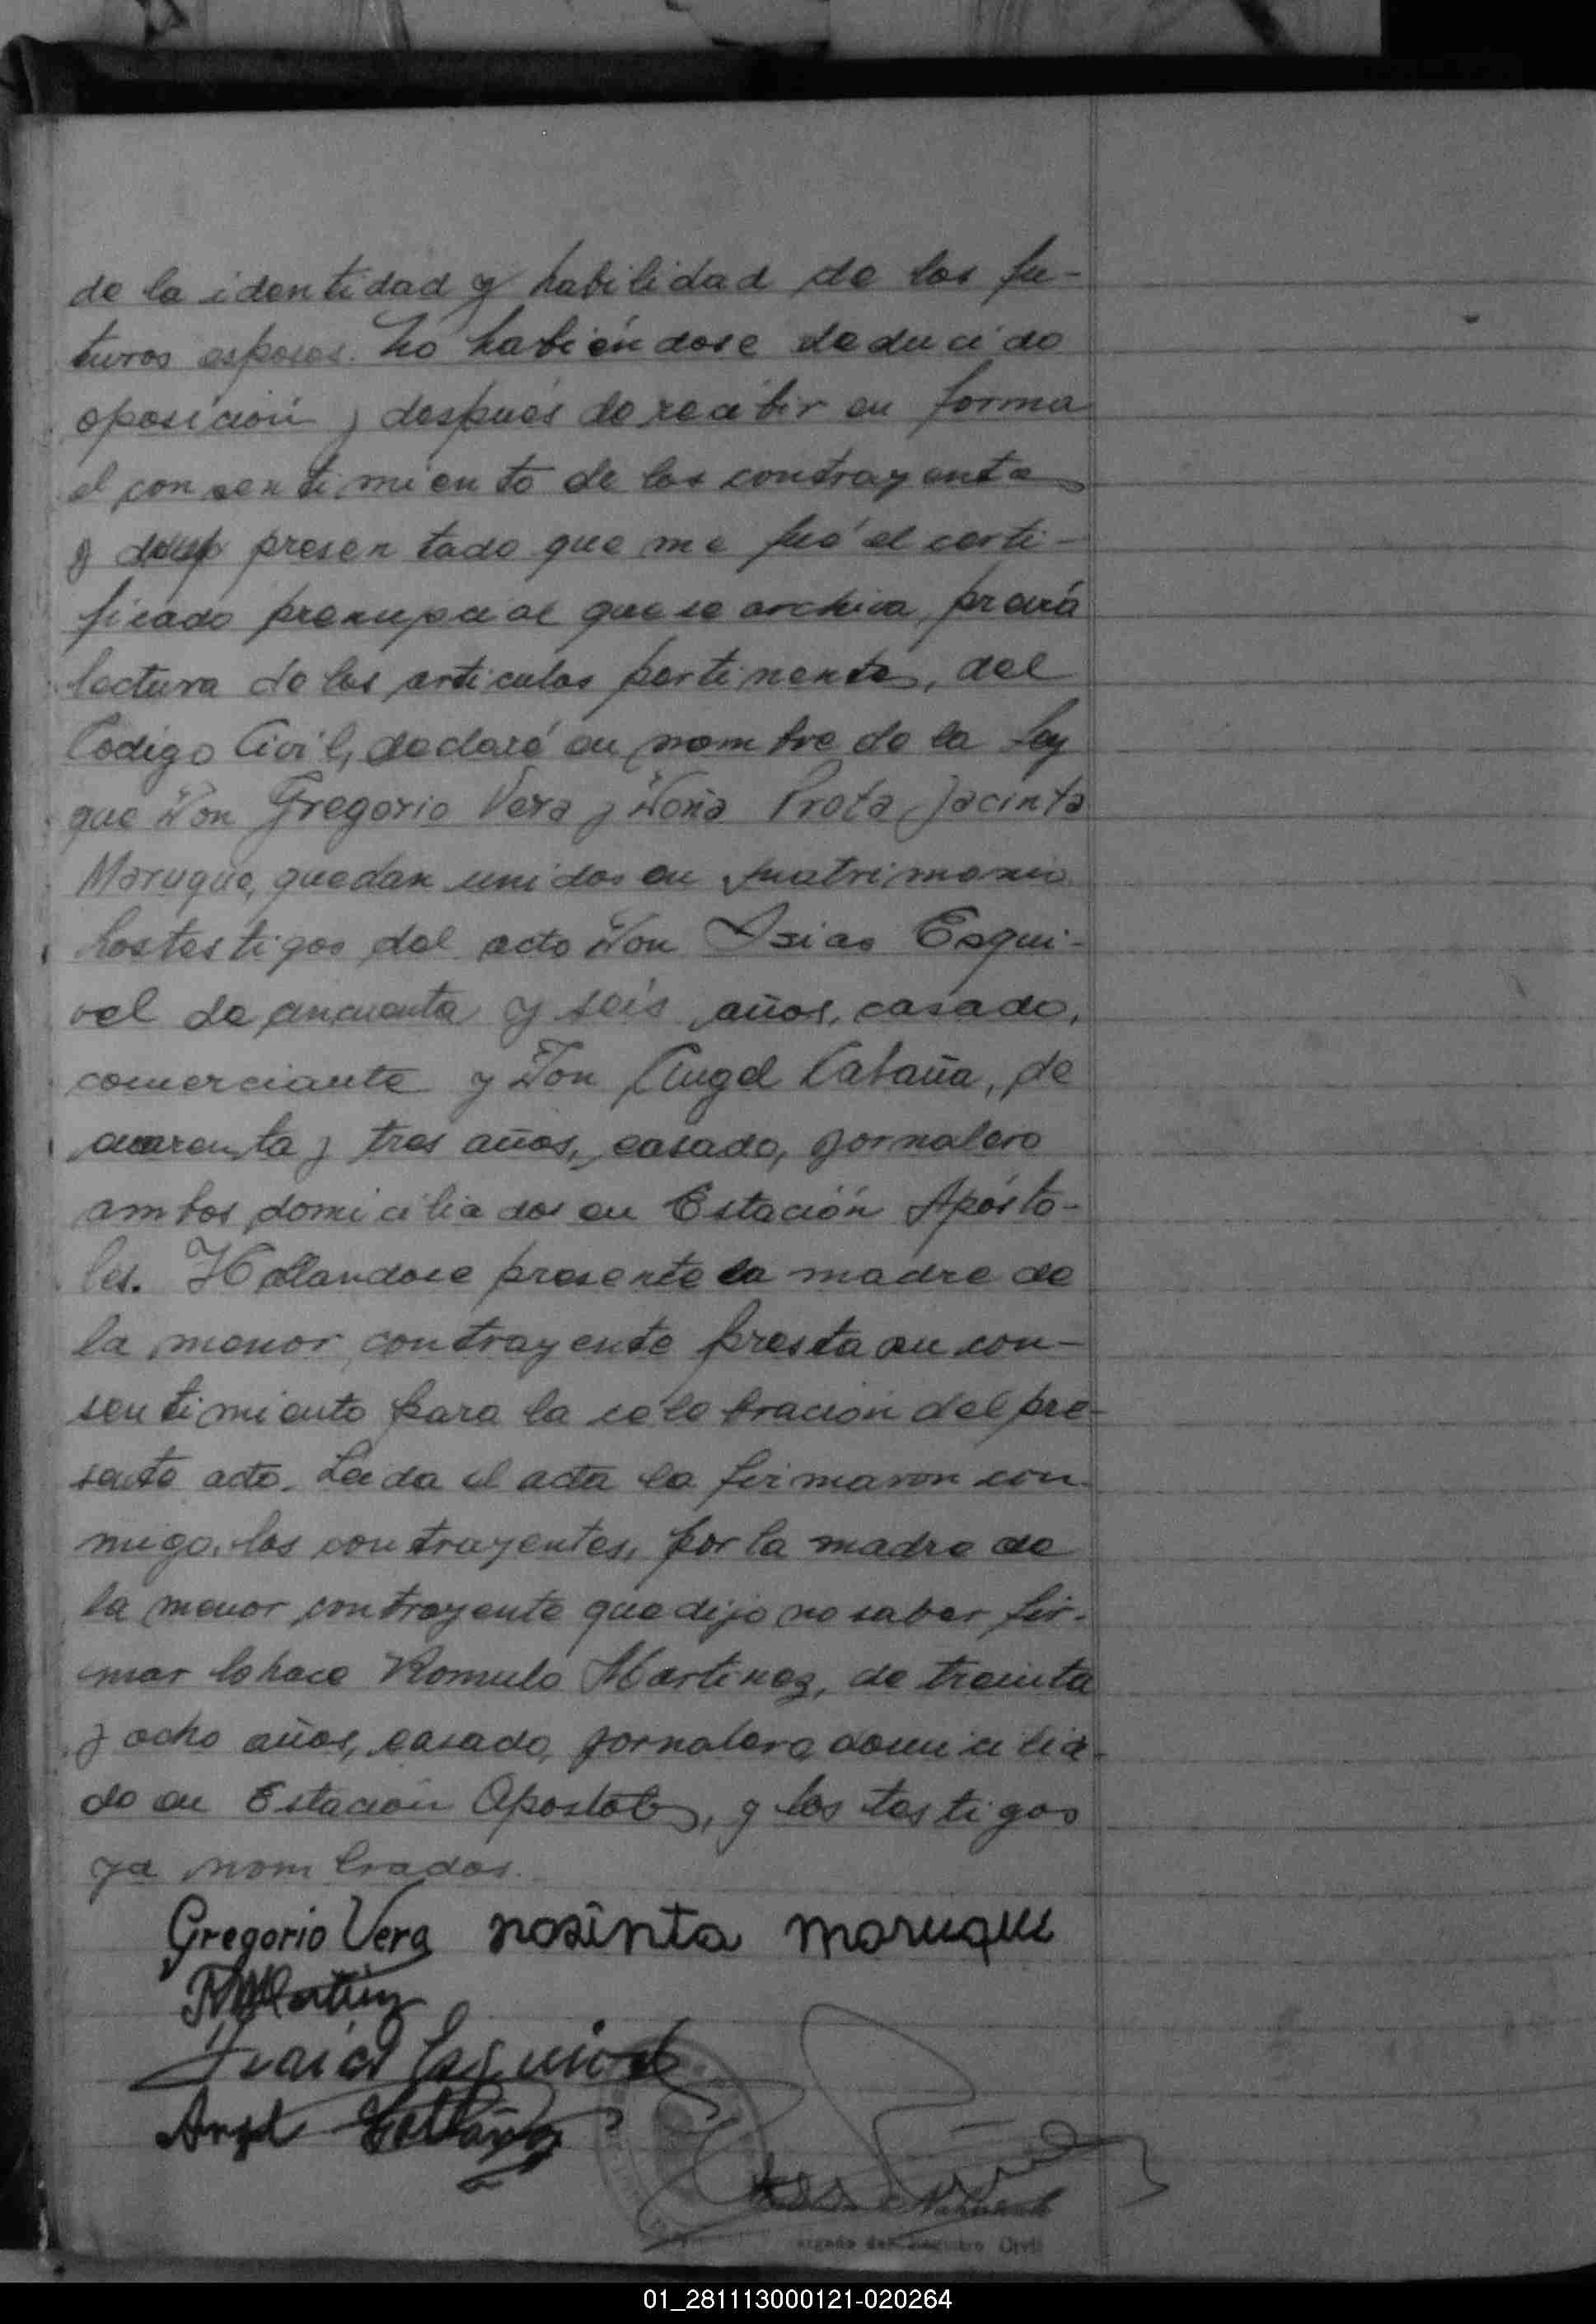 de la identidad y habilidad de los fu-
turos esposos. No habiéndose deducido
oposición y después de recibir en forma
el consentimiento de los contrayentes
y presentado que me fué el certi-
ficado prenupcial que se archiva, previa
lectura de los articulos pertinentes, del
Codigo Civil, declaré en nombre de la Ley
que Don Gregorio Vera y Doña Prota Jacinta
Maruque, quedan unidos en matrimonio.
Los testigos del acto Don Isias Esqui-
vel de cincuenta y seis años, casado,
comerciante y Don Angel Cabaña, de
cuarenta y tres años, casado, jornalero
ambos domiciliados en Estación Apósto-
les. Hallandose presente la madre de
la menor contrayente presta su con-
sentimiento para la celebración del pre-
sente acto. Leida el acta la firmaron con-
migo, los contrayentes, por la madre de
la menor contrayente que dijo no saber fir-
mar lo hace Romulo Martinez, de treinta
y ocho años, casado, jornalero domicilia-
do en Estación Apostoles, y los testigos
ya nombrados.
Gregorio Vera nosinta maruque
R Martinez
Esquivel
Angel
Registro Civil
01_281113000121-020264